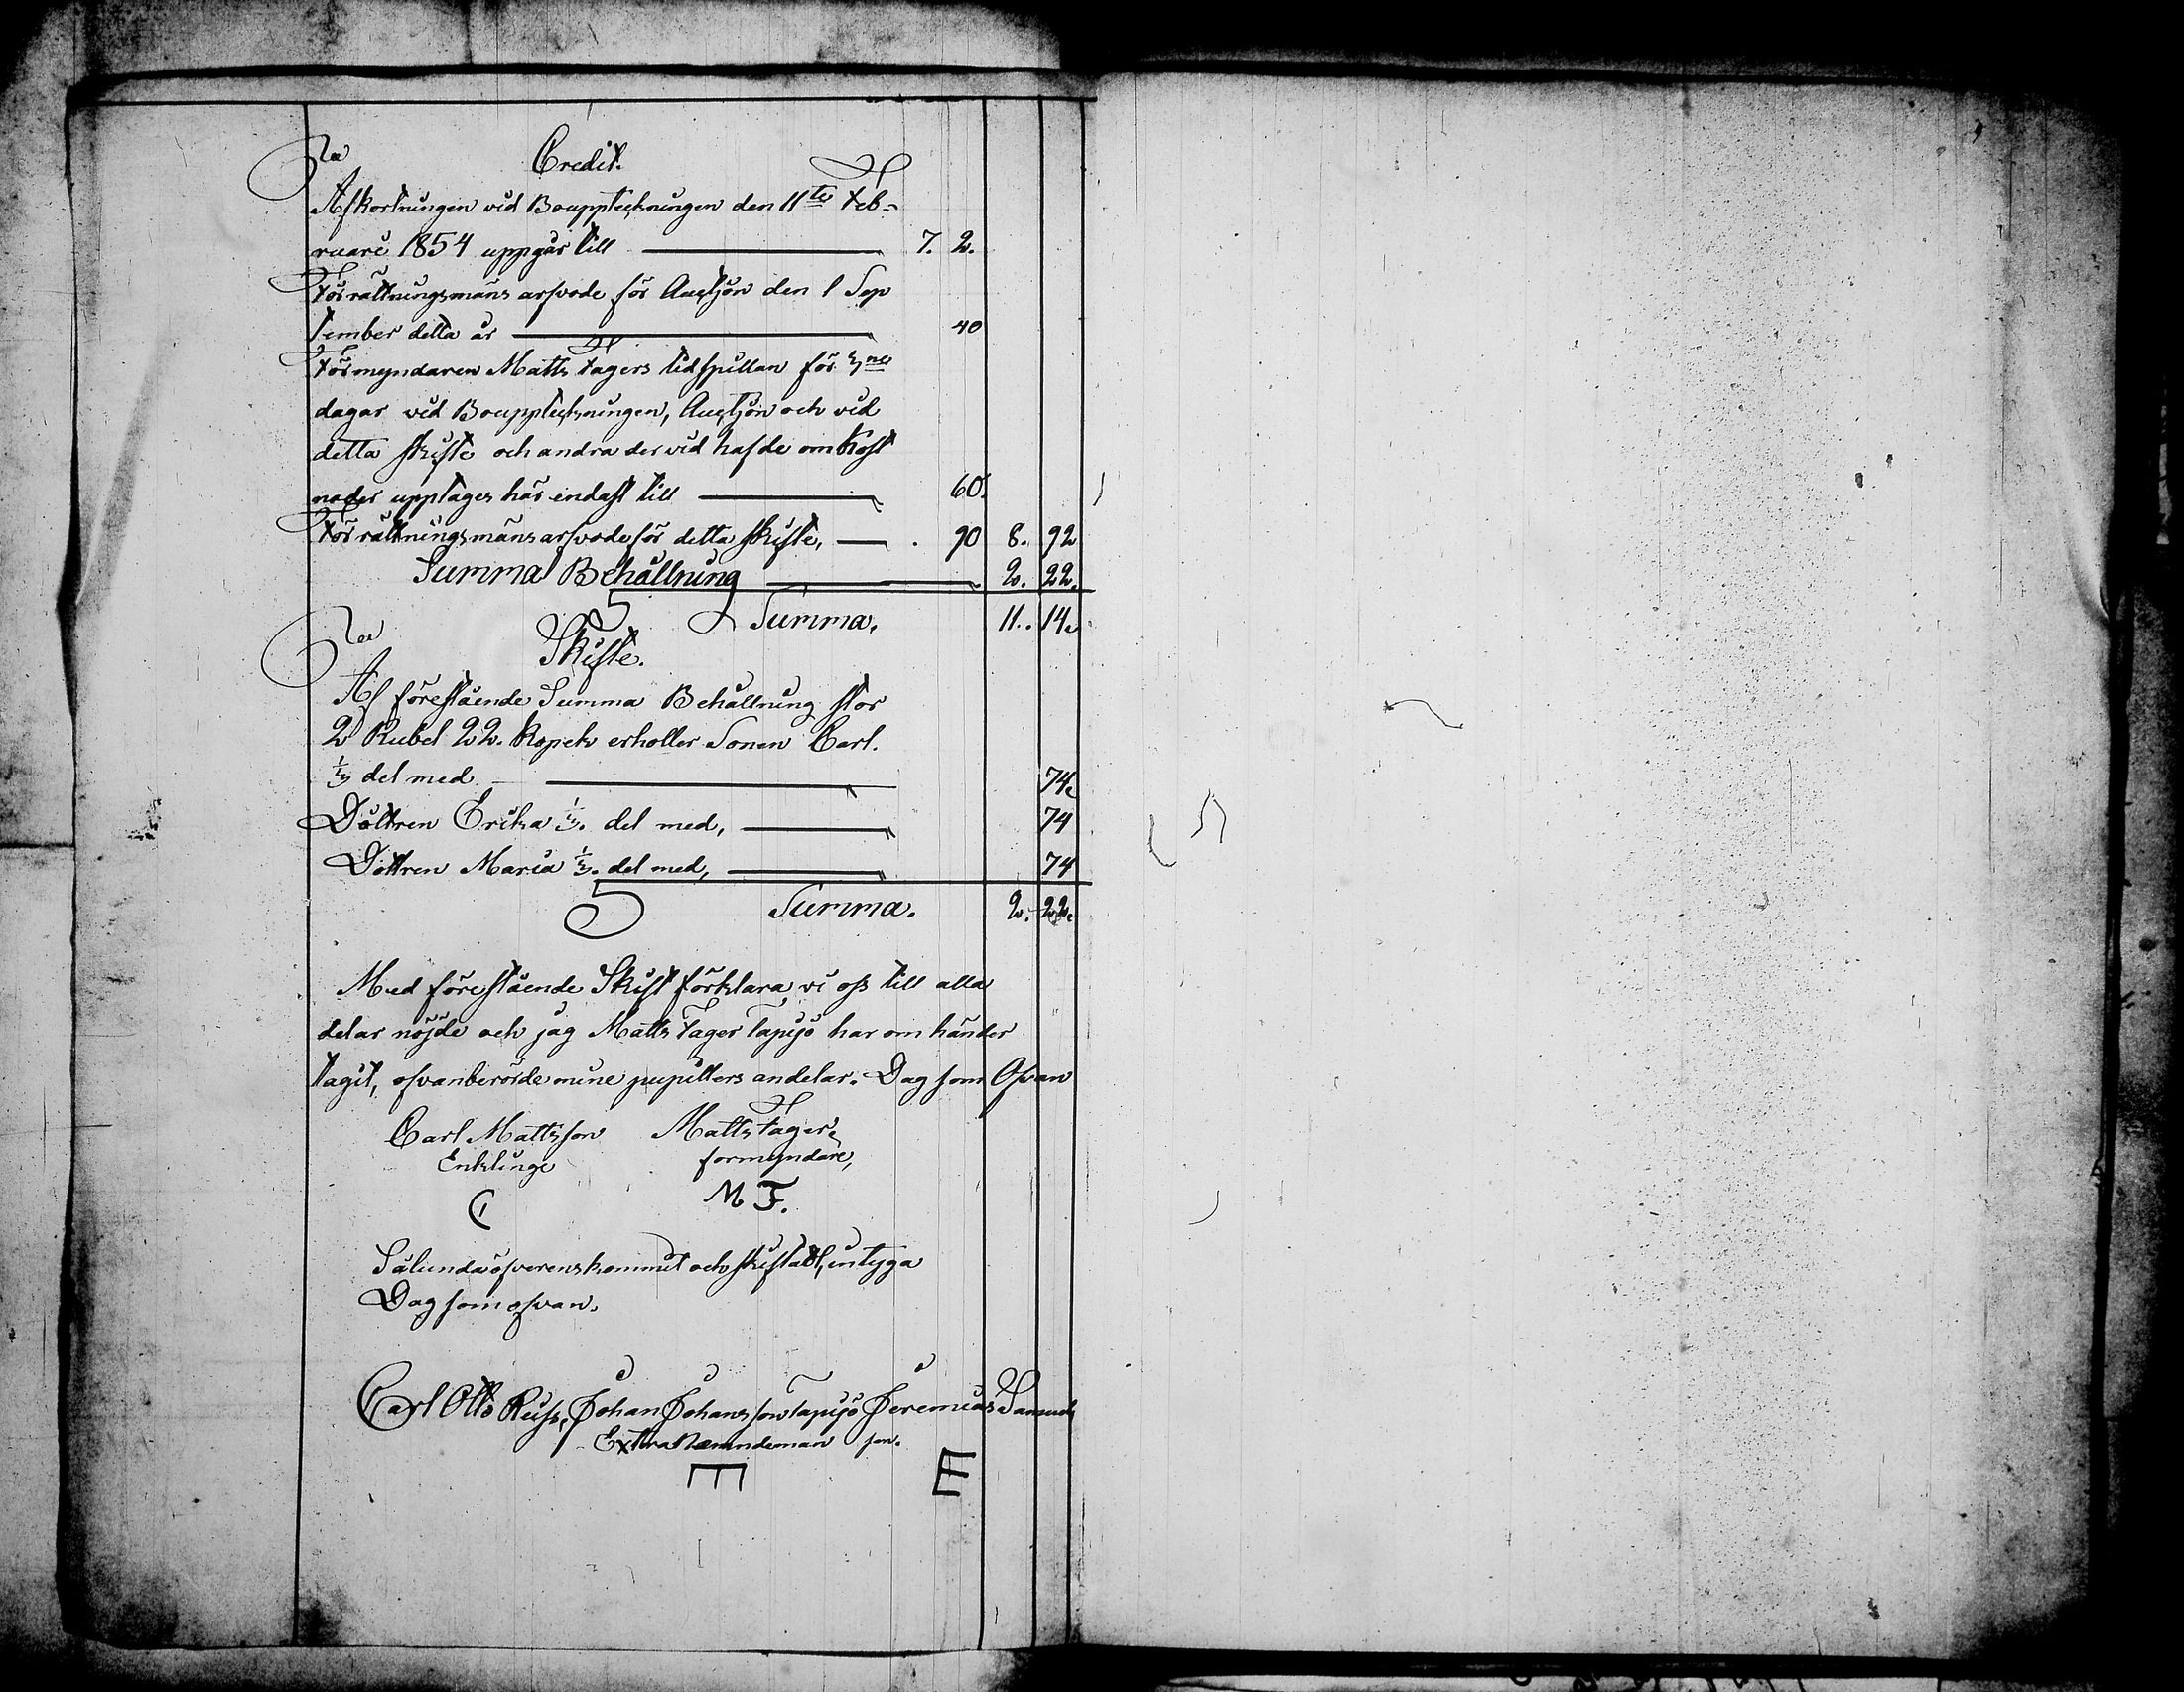 Credit.
Afkortningen vid Bouppteckningen den 11te Feb-
ruari 1854 uppgår till 7. 2.
Förrättningsmäns arfvode för Auctjon den 1 Sep
tember detta år 40
Förmyndaren Matts Fagers tidspillan för 3ne
dagar vid Bouppteckningen, Auctjon och vid
detta skifte och andra der vid hafde omkost
nader upptages här endast till 60.
Förrättningsmäns arfvode för detta skifte, 90 8. 92
Summa Behållning 2. 22.
Summa. 11. 14.
Skifte.
Af förestående Summa Behållning stor
2 Rubel 22. Kopek erhåller Sonen Carl.
1/3 del med 74.
Dottren Erika 1/3. del med, 74
Dottren Maria 1/3. del med, 74
Summa. 2. 22.
Med förestående Skift förklara vi oss till alla
delar nöjde och jag Matts Fager Tapijö har om händer
tagit, ofvanberörde mine pupillers andelar. Dag som Ofvan
Carl Mattsson Matts Fager,
Enklinge formyndare,
M F.
Sålunda öfverenskommit och skiftadt, intyga
Dag som ofvan.
Carl Otto Russ, Johan Johansson Tapijö Jeremias Samuels
Extra Nämndeman son.
E